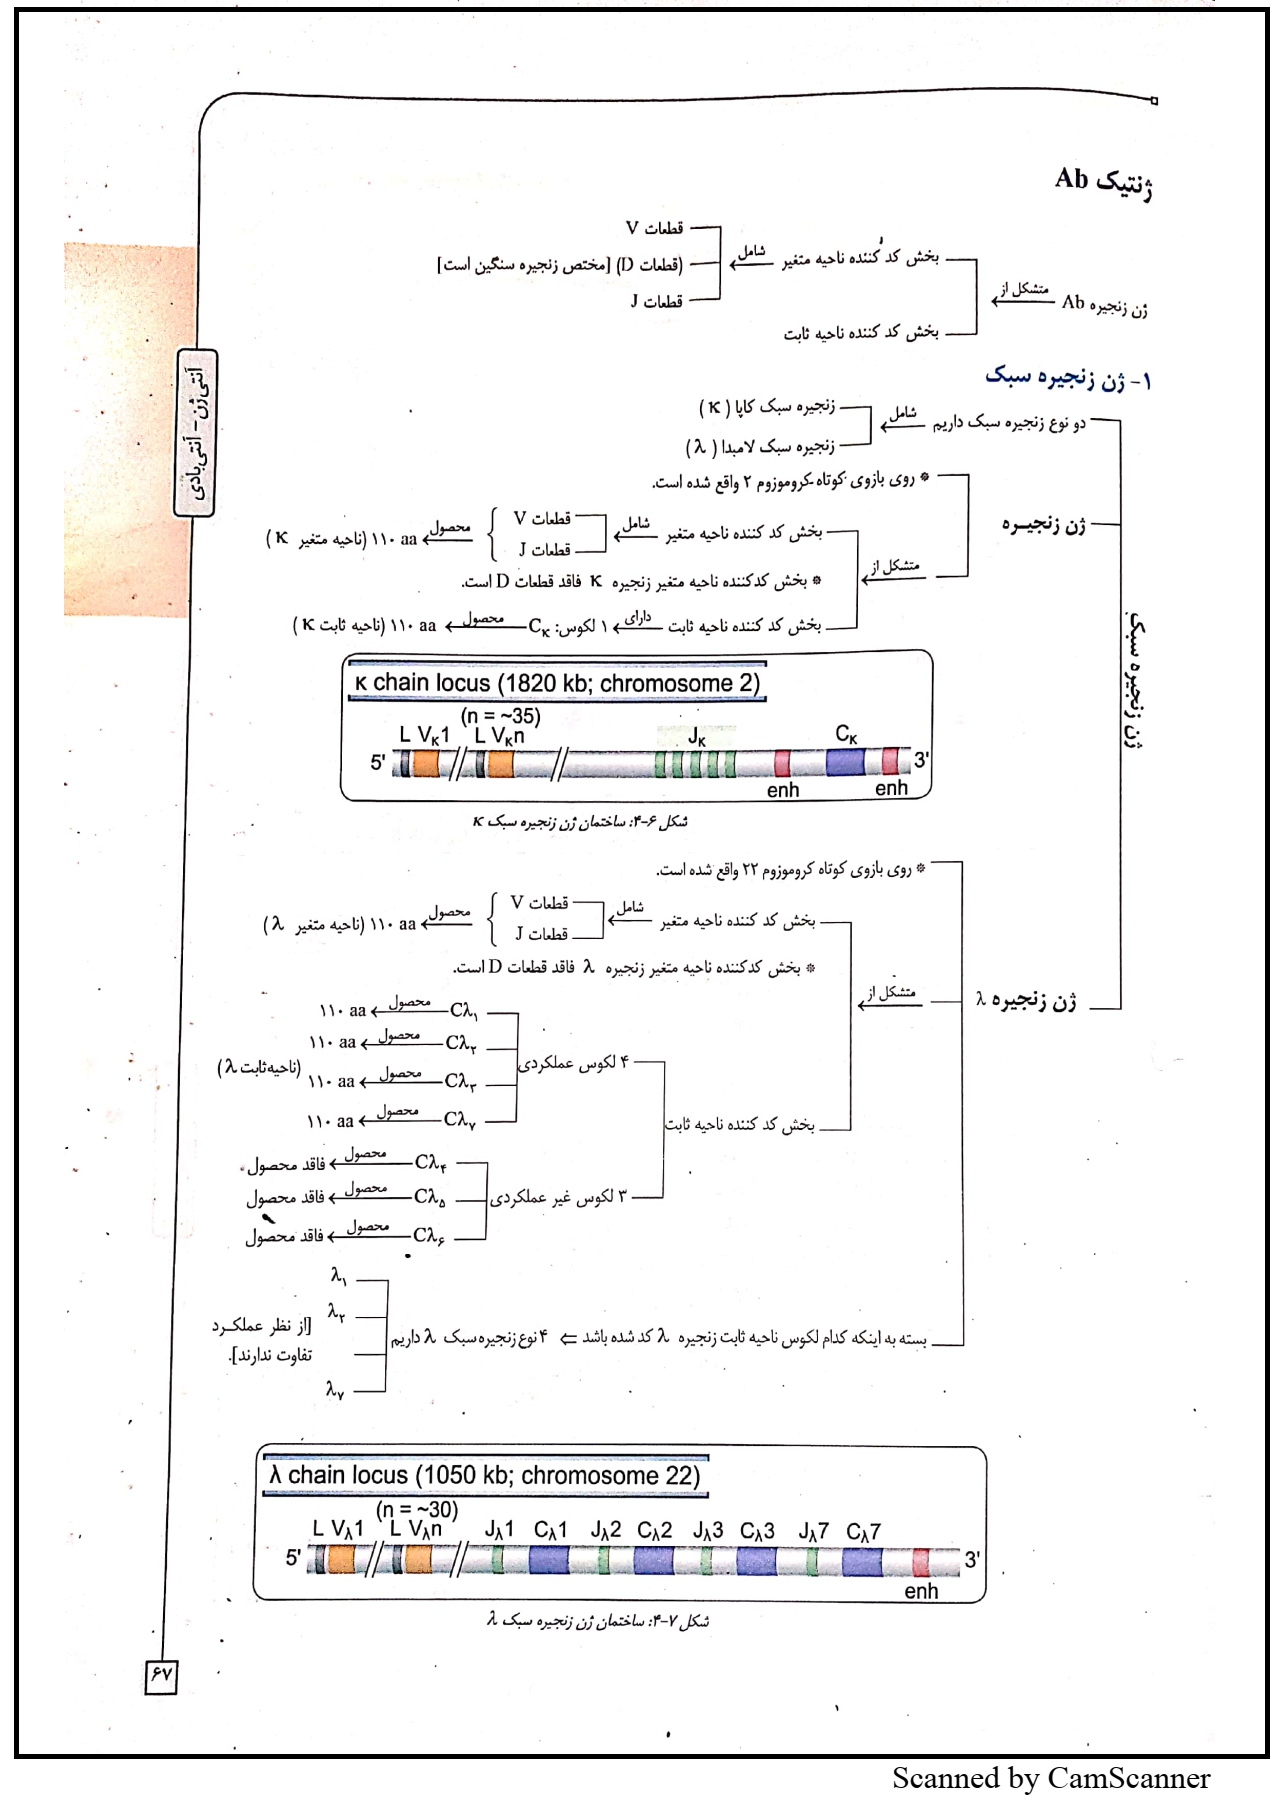 ژنتیک Ab
قطعات V
بخش کد کننده ناحیه متغیر شامل (قطعات D) [مختص زنجیره سنگین است]
قطعات J
ژن زنجیره Ab متشکل از
بخش کد کننده ناحیه ثابت
۱- ژن زنجیره سبک
دو نوع زنجیره سبک داریم شامل زنجیره سبک کاپا (κ)
زنجیره سبک لامبدا (λ)
* روی بازوی کوتاه کروموزوم ۲ واقع شده است.
ژن زنجیره
بخش کد کننده ناحیه متغیر شامل قطعات V
قطعات J
محصول ۱۱۰ aa (ناحیه متغیر κ)
متشکل از
* بخش کدکننده ناحیه متغیر زنجیره κ فاقد قطعات D است.
بخش کد کننده ناحیه ثابت دارای ۱ لکوس: Cκ محصول ۱۱۰ aa (ناحیه ثابت κ)
ژن زنجیره سبک
آنتی‌ژن - آنتی‌بادی
κ chain locus (1820 kb; chromosome 2)
(n = ~35)
L Vκ1 L Vκn Jκ Cκ
5' 3'
enh enh
شکل ۶-۴: ساختمان ژن زنجیره سبک κ
* روی بازوی کوتاه کروموزوم ۲۲ واقع شده است.
بخش کد کننده ناحیه متغیر شامل قطعات V
قطعات J
محصول ۱۱۰ aa (ناحیه متغیر λ)
* بخش کدکننده ناحیه متغیر زنجیره λ فاقد قطعات D است.
ژن زنجیره λ متشکل از
Cλ۱ محصول ۱۱۰ aa
Cλ۲ محصول ۱۱۰ aa
۴ لکوس عملکردی
(ناحیه ثابت λ)
Cλ۳ محصول ۱۱۰ aa
Cλ۷ محصول ۱۱۰ aa
بخش کد کننده ناحیه ثابت
Cλ۴ محصول فاقد محصول
۳ لکوس غیر عملکردی Cλ۵ محصول فاقد محصول
Cλ۶ محصول فاقد محصول
λ۱
λ۲
بسته به اینکه کدام لکوس ناحیه ثابت زنجیره λ کد شده باشد ⇐ ۴ نوع زنجیره سبک λ داریم
[از نظر عملکرد
تفاوت ندارند].
λ۷
λ chain locus (1050 kb; chromosome 22)
(n = ~30)
L Vλ1 L Vλn Jλ1 Cλ1 Jλ2 Cλ2 Jλ3 Cλ3 Jλ7 Cλ7
5' 3'
enh
شکل ۷-۴: ساختمان ژن زنجیره سبک λ
۶۷
Scanned by CamScanner